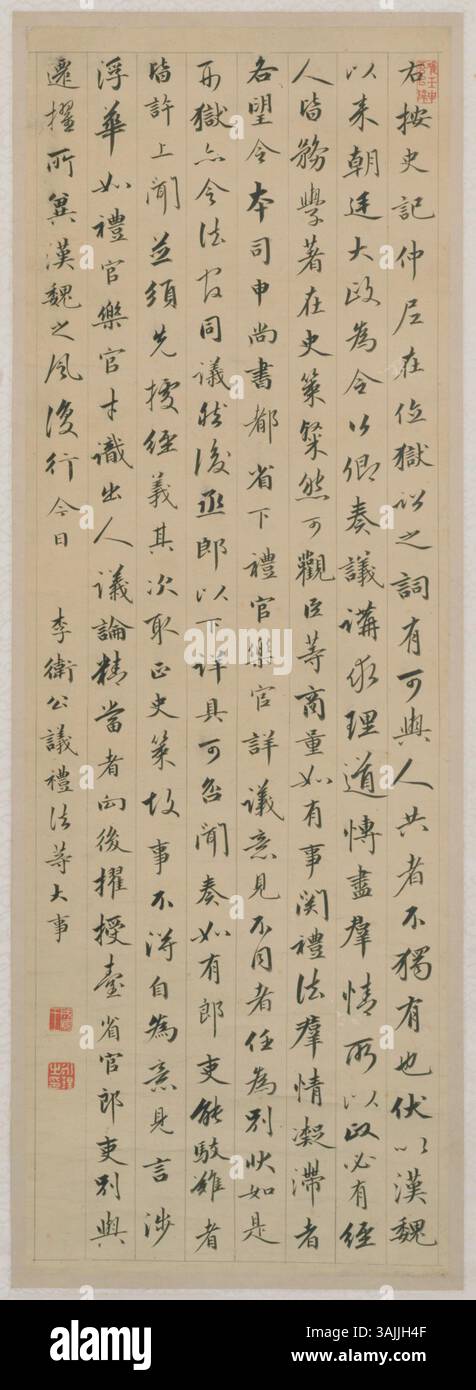 右按史記仲尼在位獄訟之詞有可與人共者不獨有也伏以漢魏
以来朝廷大政為令公卿奏議講求理道博盡羣情所以政必有經
人皆務學著在史策粲然可觀臣等商量如有事関禮法羣情凝滯者
各望令本司申尚書都省下禮官樂官詳議意見不同者任為別狀如是
刑獄亦令法官同議然後丞郎以下詳具可否聞奏如有郎吏能駁難者
皆許上聞並須先據經義其次取正史策故事不得自為意見言涉
浮華如禮官樂官才識出人議論精當者向後擢授臺省官郎吏別與
遷擢所冀漢魏之風復行今日 李衛公議禮法等大事
alamy
Image ID: 3AJJH4F
www.alamy.com